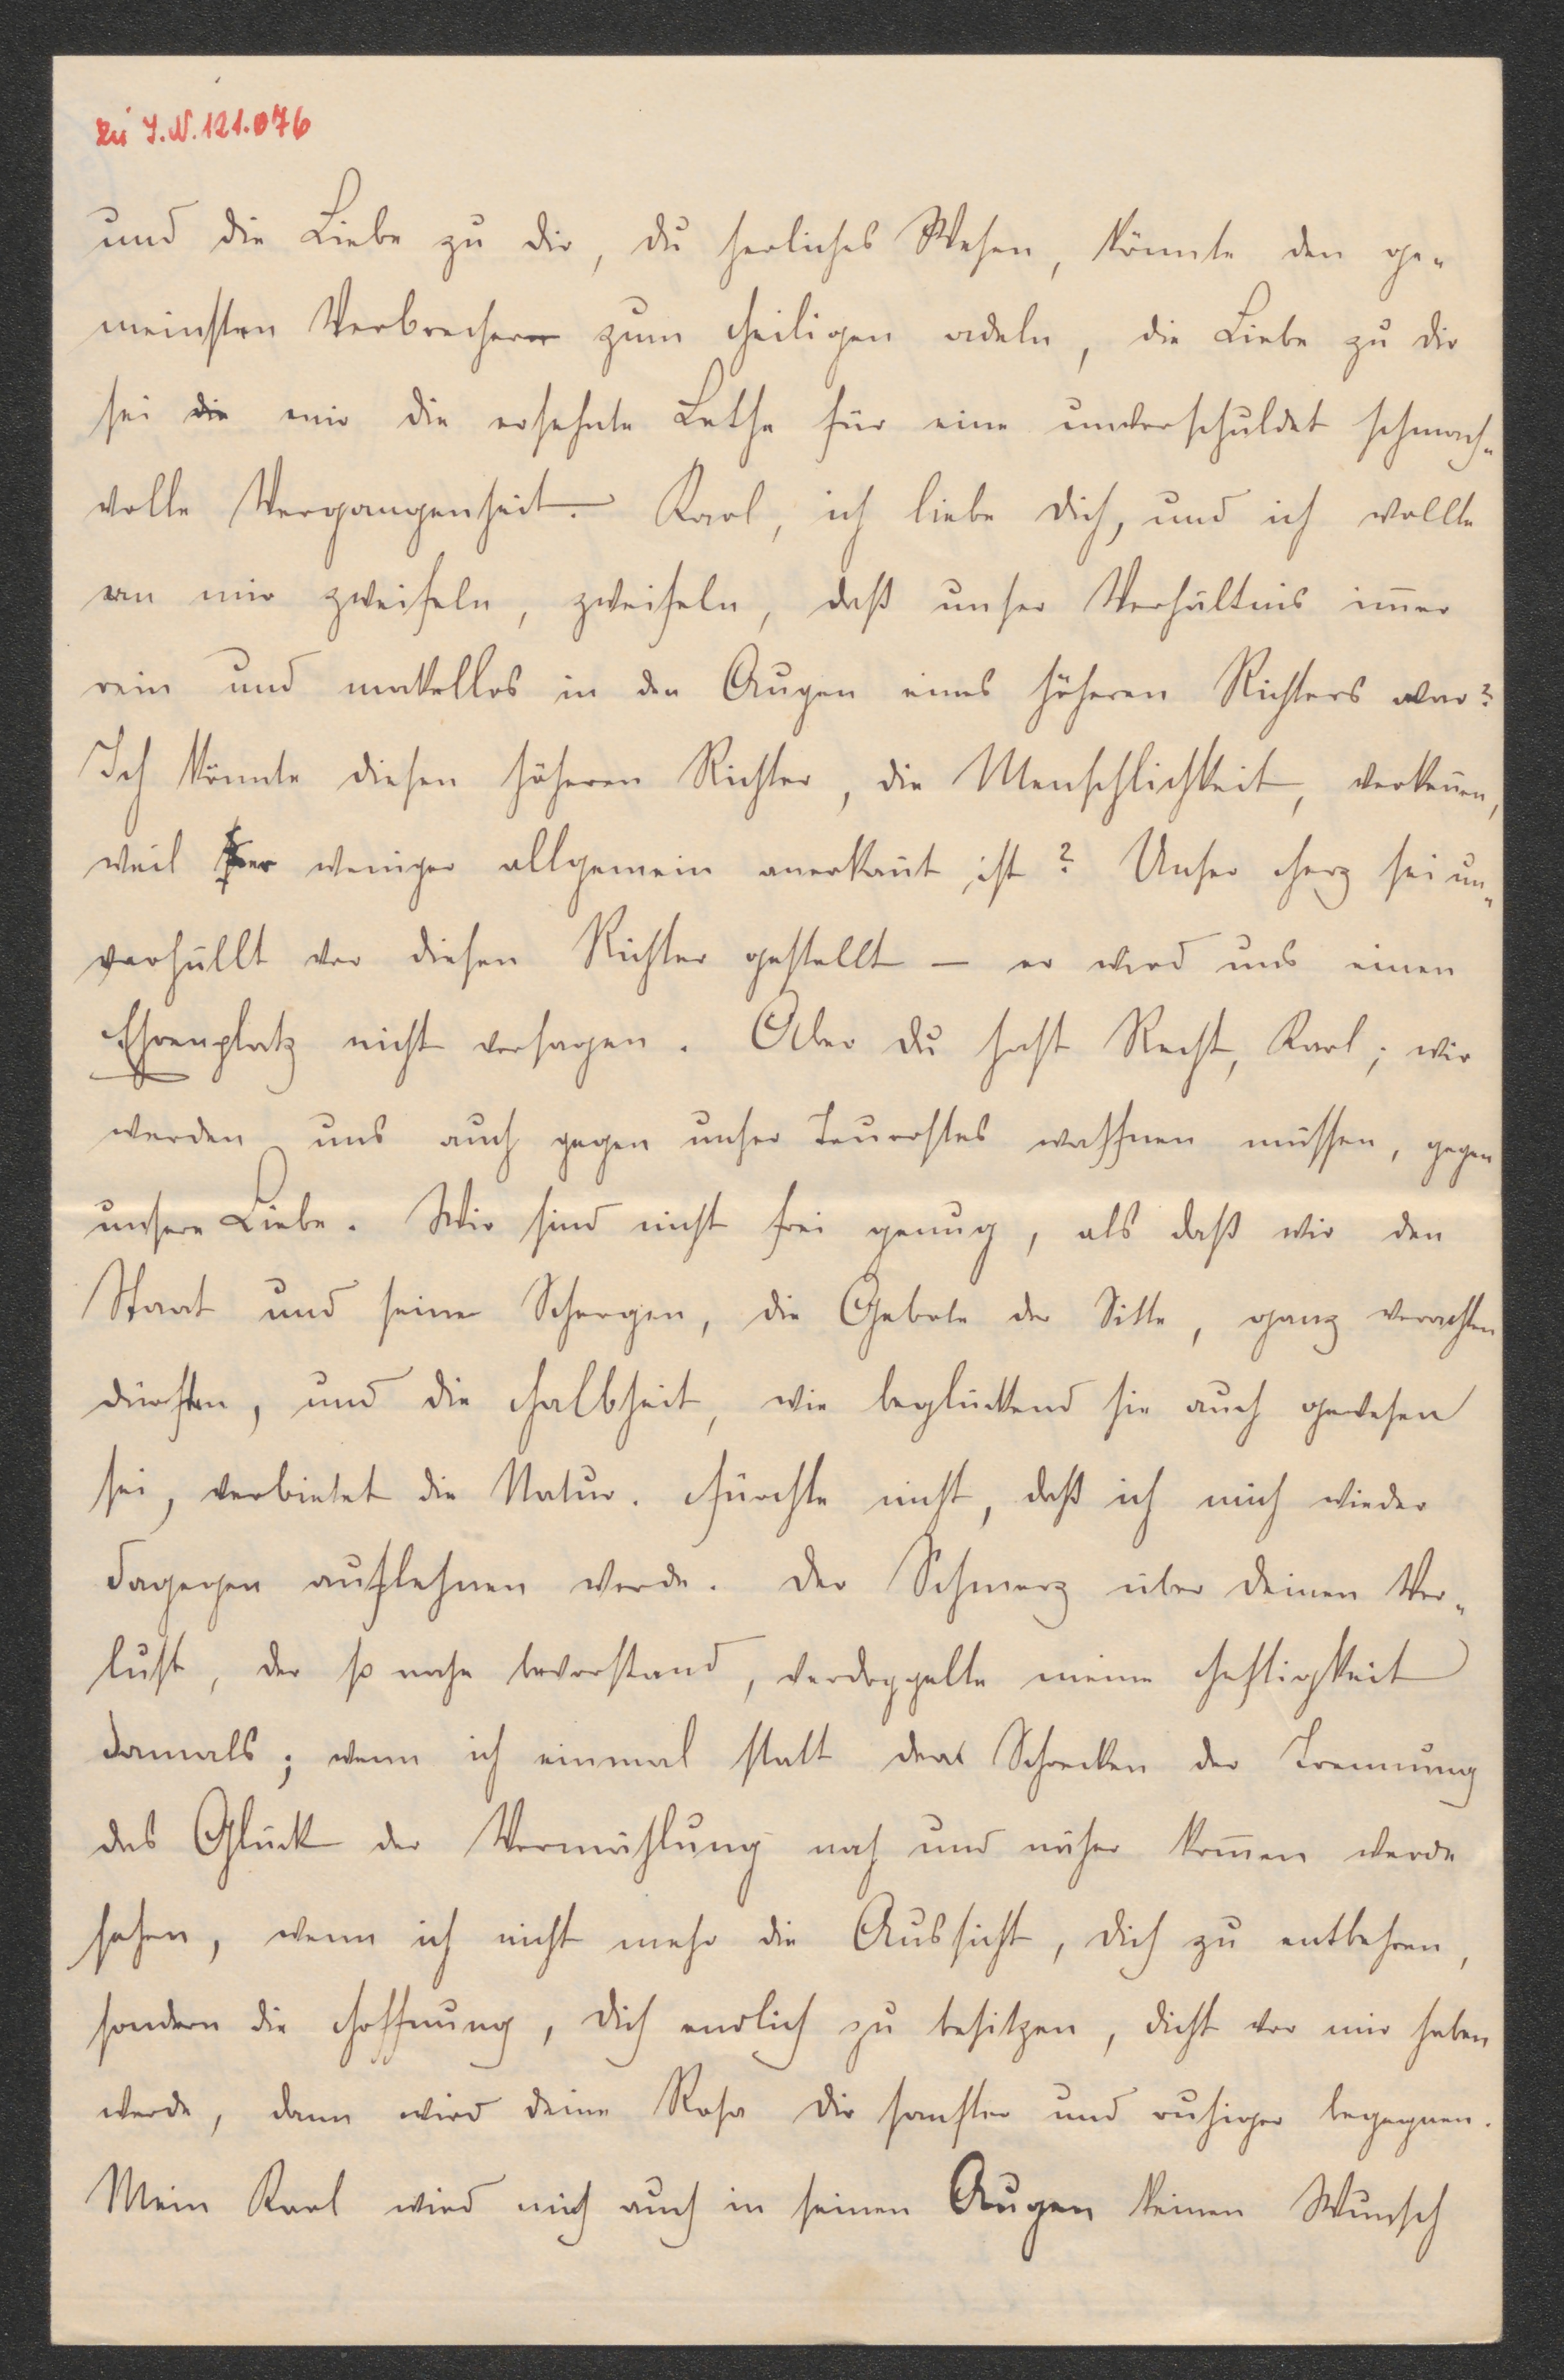 zu I.N. 121.076
und die Liebe zu dir, du herliches Wesen, könnte den ge-
meinsten Verbrecher zum Heiligen adeln, die Liebe zu dir
sei die mir die ersehnte Lethe für eine unverschuldet schmach-
volle Vergangenheit. Karl, ich liebe dich, und ich wollte
an mir zweifeln, zweifeln, daß unser Verhältnis im̄er
rein und makellos in den Augen eines höheren Richters war?
Ich könnte diesen höheren Richter, die Menschlichkeit, verken̄en,
weil er weniger allgemein anerkan̄t ist? Unser Herz sei un-
verhüllt vor diesen Richter gestellt – er wird uns einen
Ehrenplatz nicht versagen. Aber du hast Recht, Karl; wir
werden uns auch gegen unser Teuerstes waffnen müssen, gegen
unsere Liebe. Wir sind nicht frei genug, als daß wir den
Staat und seine Schergen, die Gebote der Sitte, ganz verachten
dürften, und die Halbheit, wie beglückend sie auch gewesen
sei, verbietet die Natur. Fürchte nicht, daß ich mich wieder
dagegen auflehnen werde. Der Schmerz über deinen Ver-
lust, der so nahe bevorstand, verdoppelte meine Heftigkeit
damals; wenn ich einmal statt des Schrecken der Trennung
das Glück der Vermählung nah und näher kom̄en werde
sehen, wenn ich nicht mehr die Aussicht, dich zu entbehren,
sondern die Hoffnung, dich endlich zu besitzen, dicht vor mir haben
werde, dann wird deine Rosa dir sanfter und ruhiger begegnen.
Mein Karl wird mich auch in seinen Augen keinen Wunsch